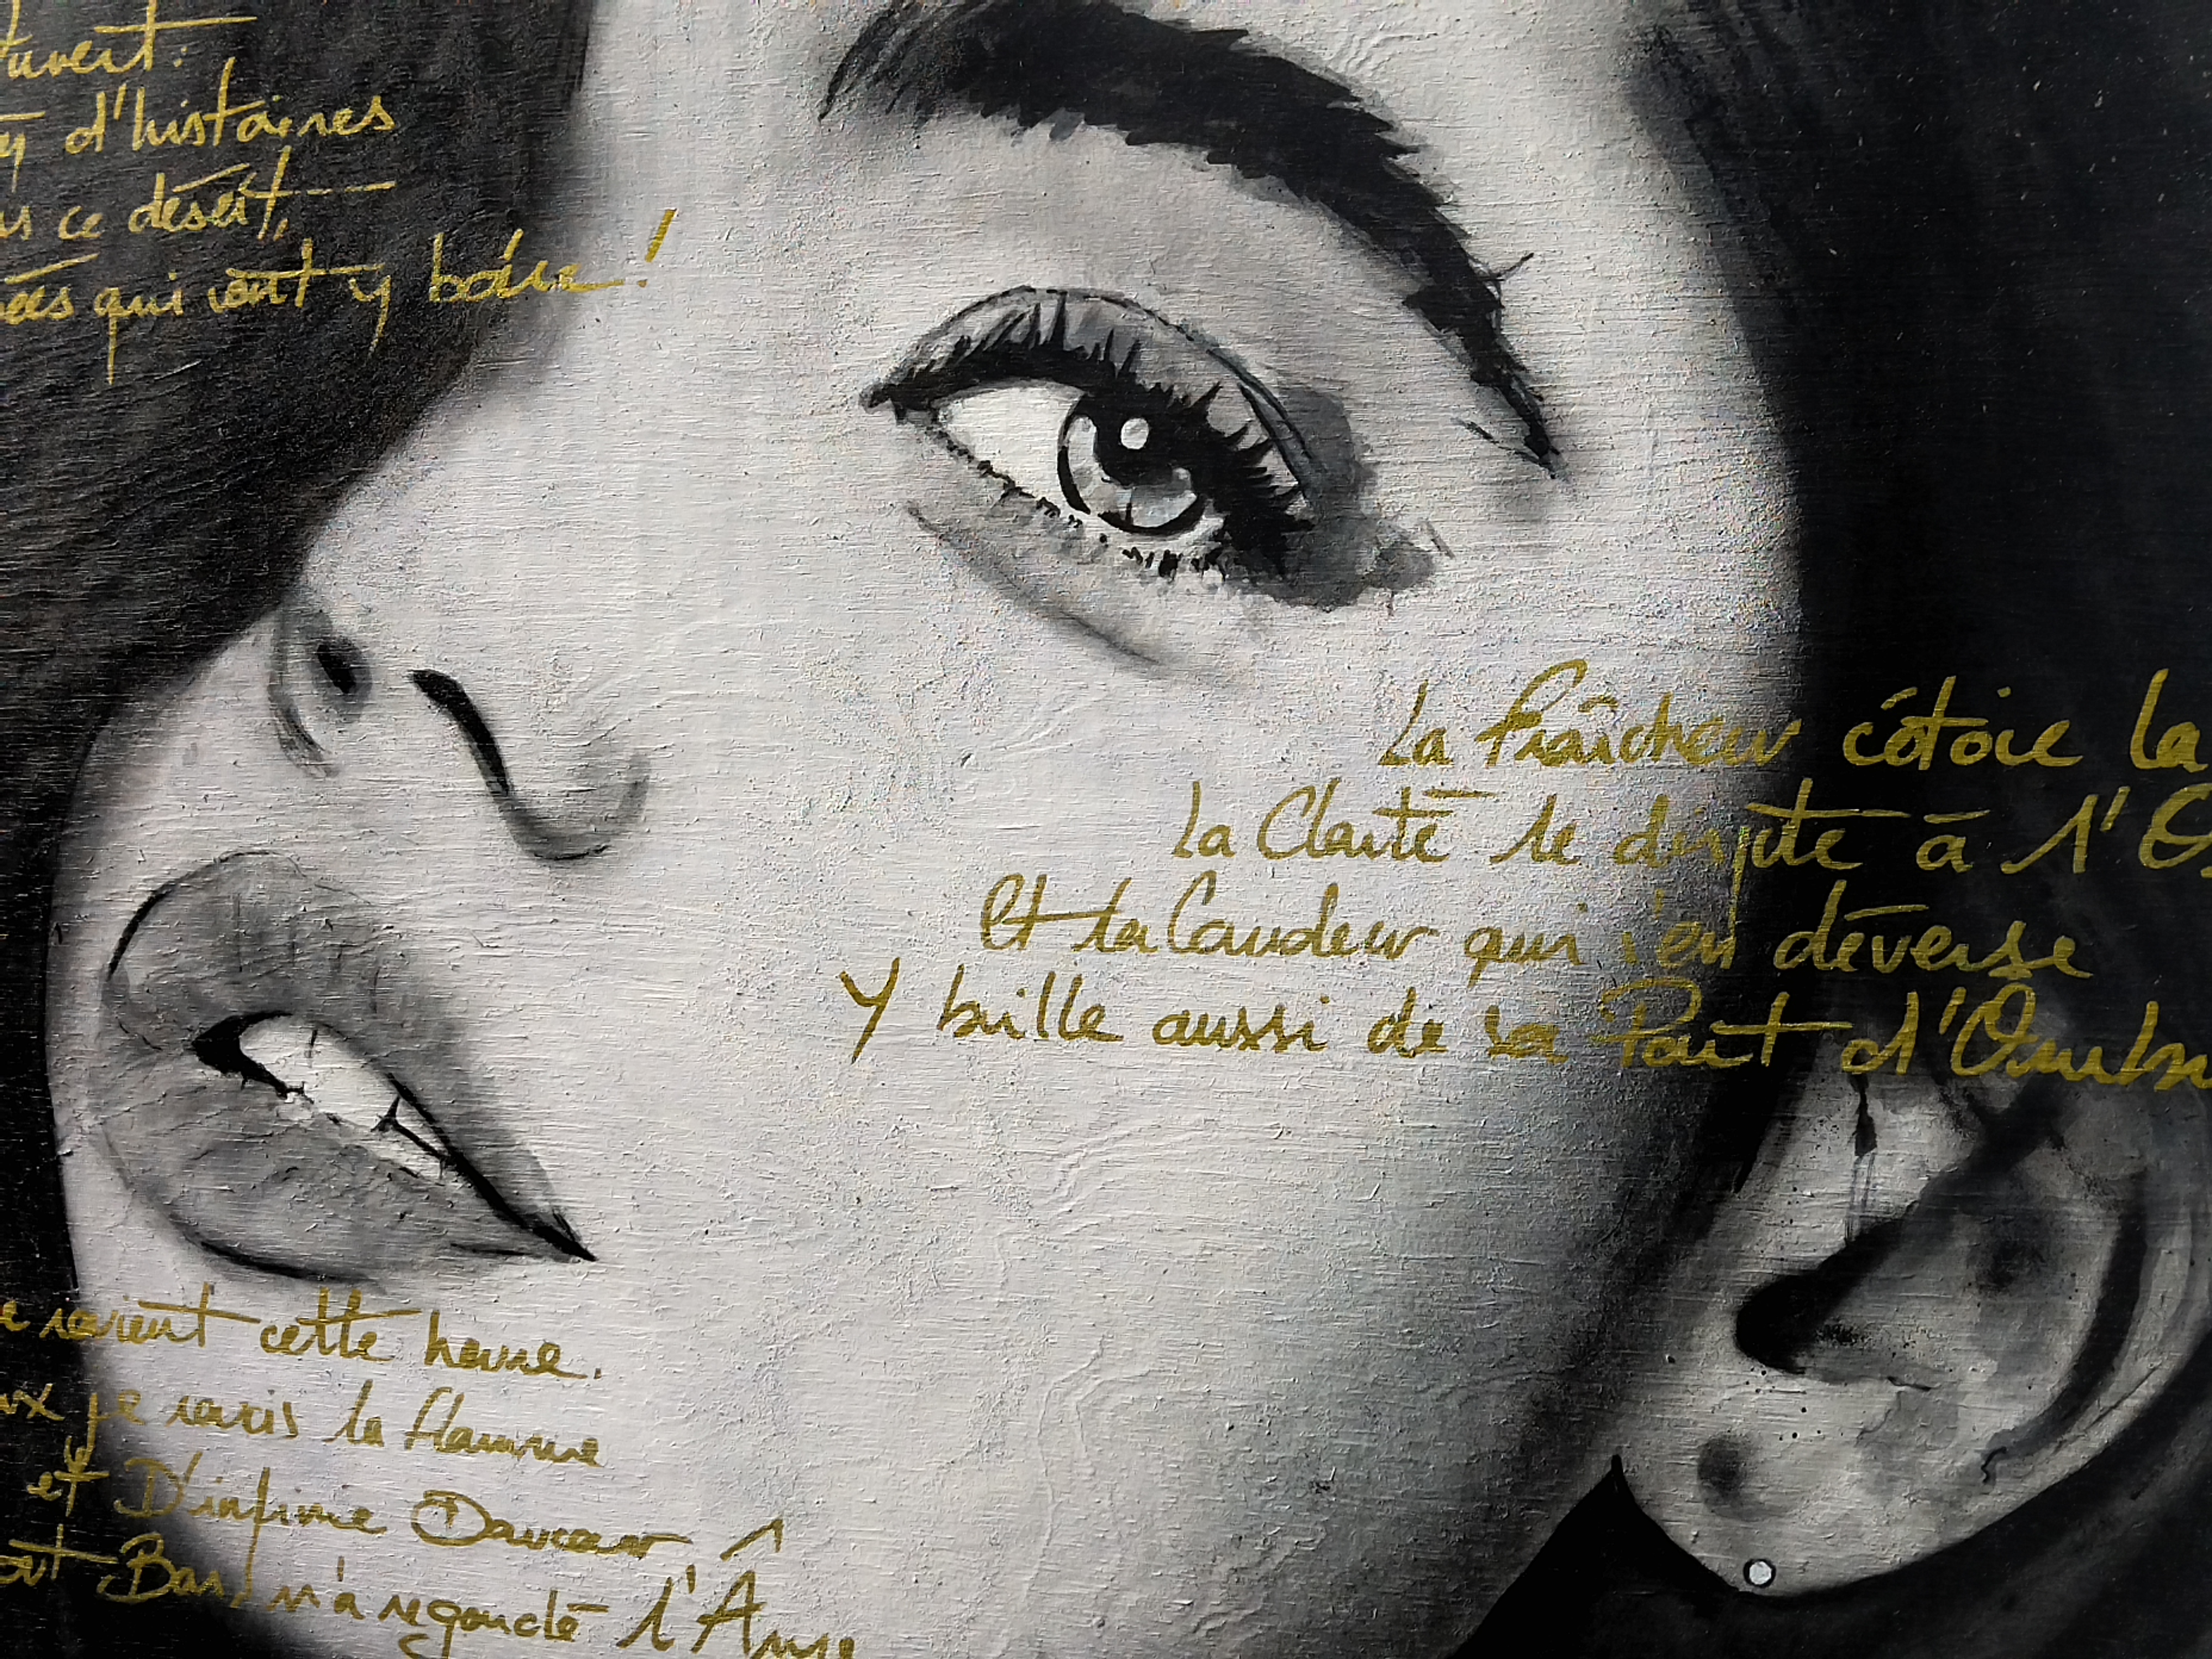 d'histoires
ce désert,
qui vont y boire !
La Fraîcheur côtoie la
La Clarté le dispute à l'O
Et la Candeur qui s'en déverse
Y brille aussi de sa Part d'Ombr
savent cette heure.
je suis la flamme
et D'infime Douceur,
Bas, m'a regardé l'Âme